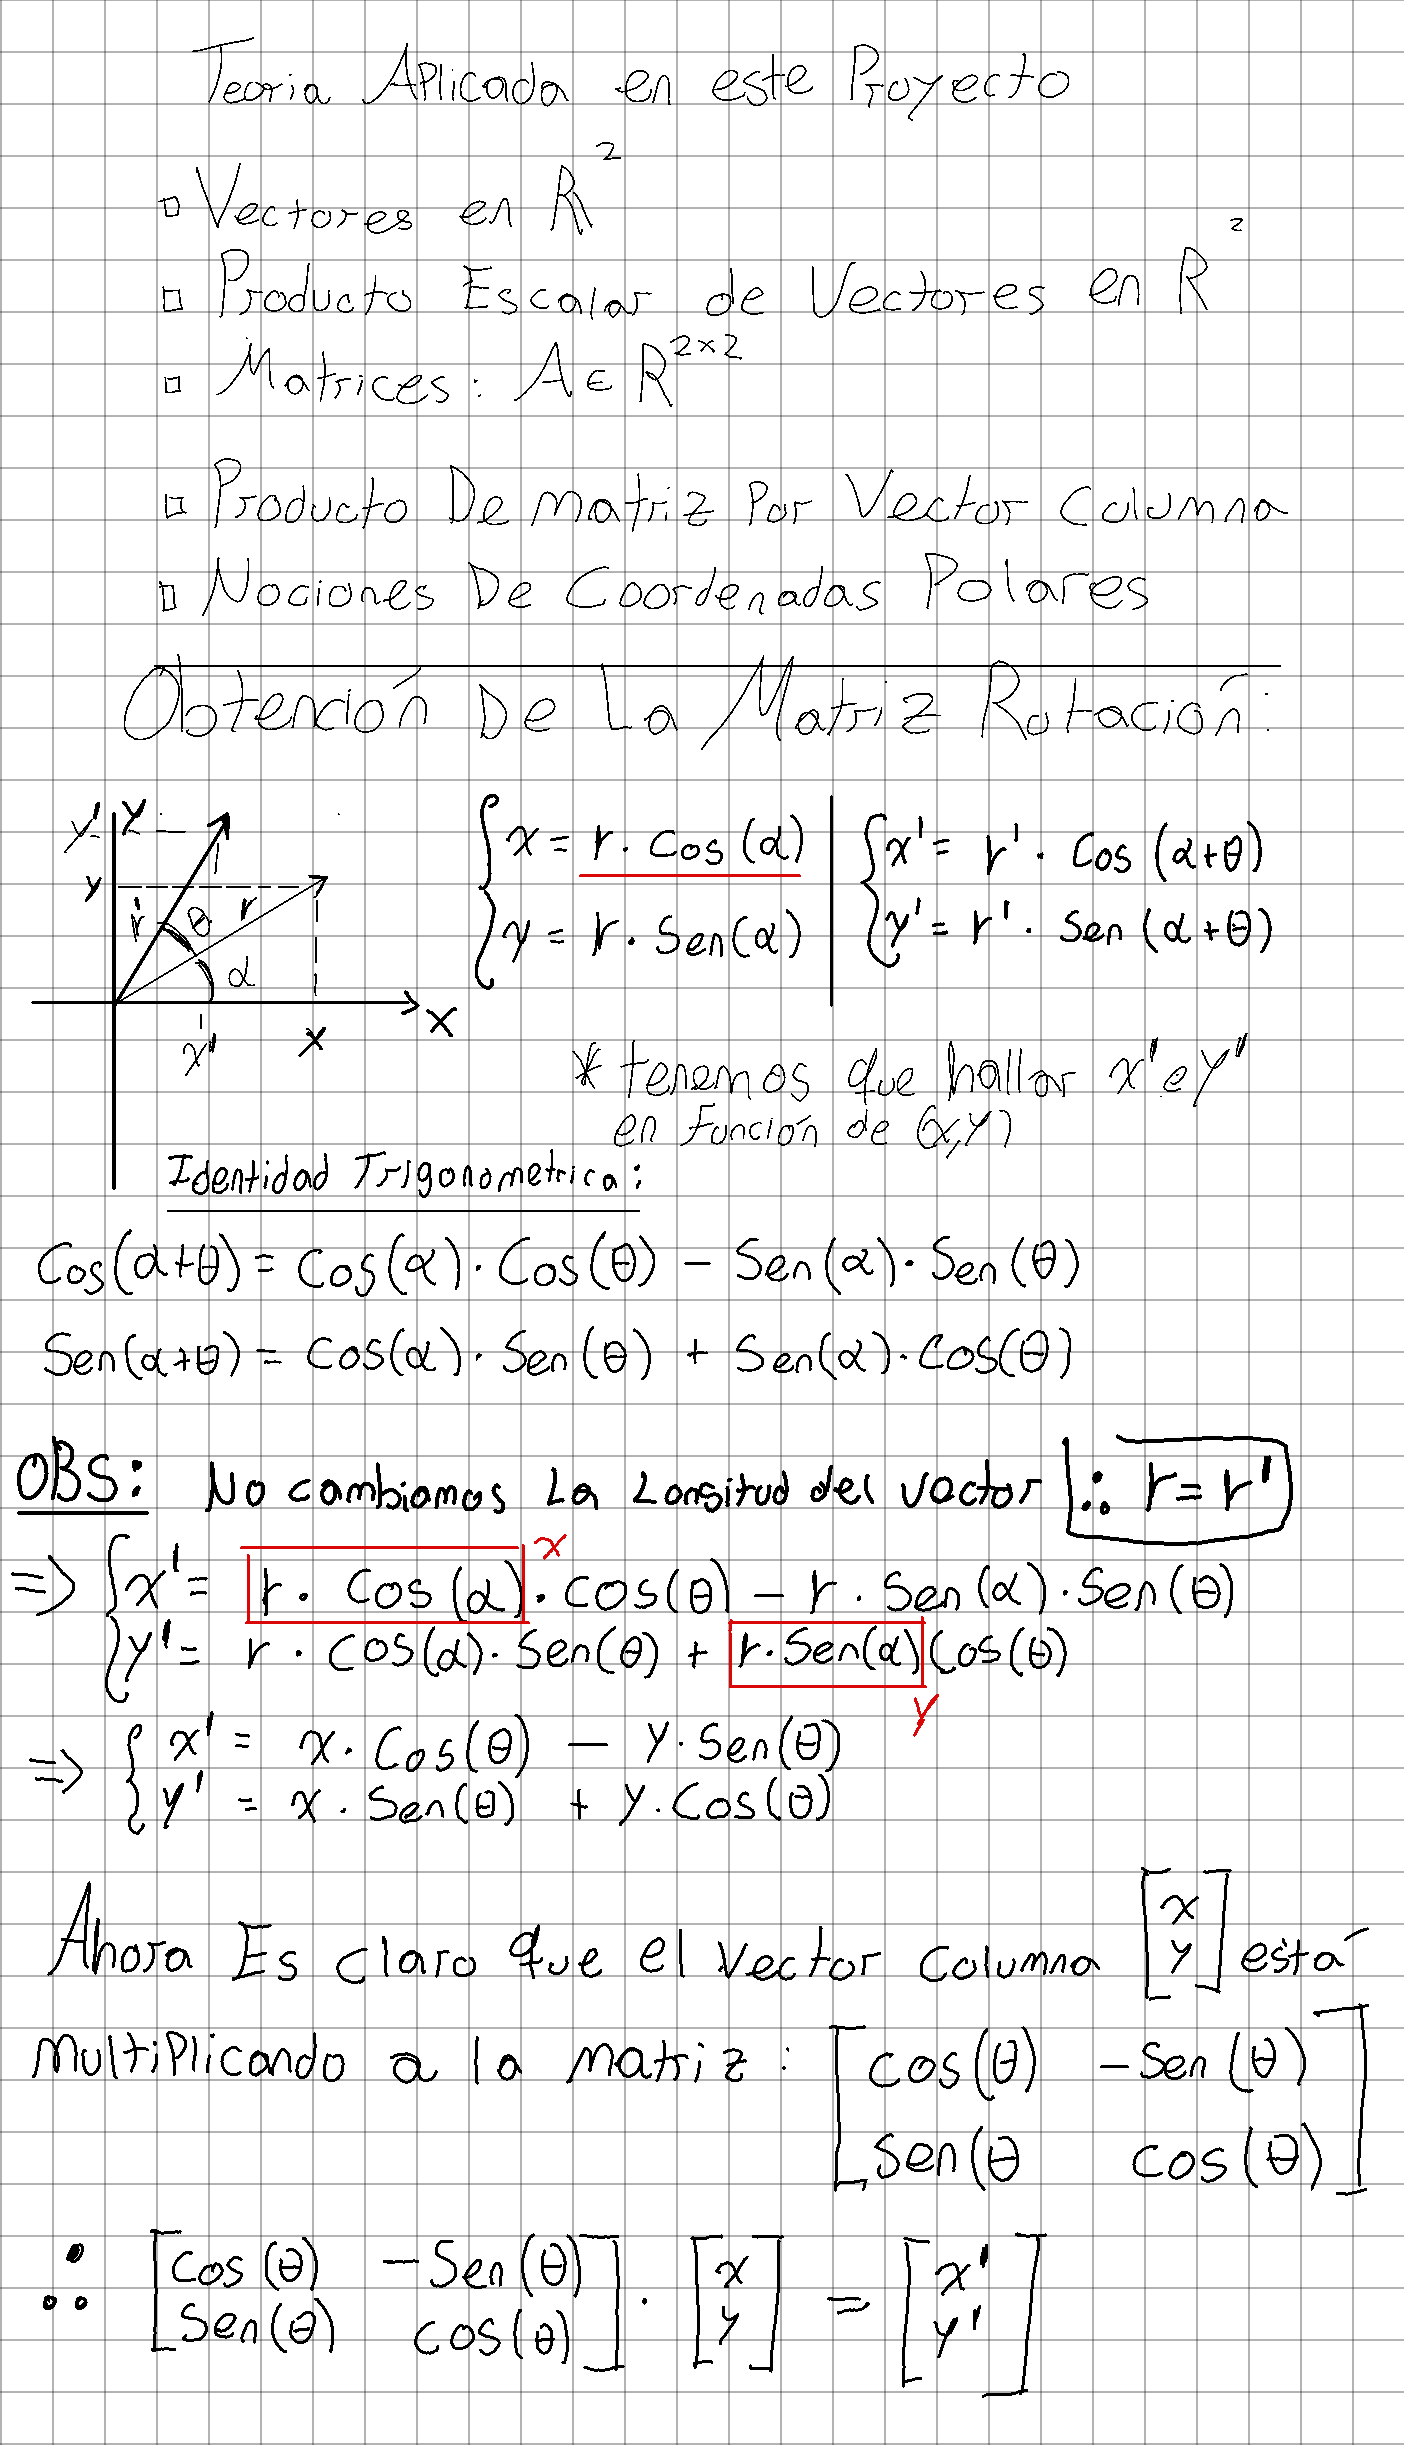 Teoria Aplicada en este Proyecto
▫ Vectores en R²
▫ Producto Escalar de Vectores en R²
▫ Matrices: A ∈ R²ˣ²
▫ Producto De matriz Por Vector Columna
▫ Nociones De Coordenadas Polares
Obtención De La Matriz Rotación:
y' y
y
r' θ r
α
x' x x
{ x = r . Cos (α) | { x' = r' . Cos (α+θ)
{ y = r . Sen(α) | { y' = r' . Sen (α+θ)
* tenemos que hallar x' e y'
en Función de (x,y)
Identidad Trigonometrica:
Cos(α+θ) = Cos(α) . Cos(θ) - Sen(α) . Sen(θ)
Sen(α+θ) = Cos(α) . Sen(θ) + Sen(α) . Cos(θ)
OBS: No cambiamos La Longitud del vector ∴ r = r'
x
=> { x' = r . Cos(α) . Cos(θ) - r . Sen(α) . Sen(θ)
{ y' = r . Cos(α) . Sen(θ) + r . Sen(α) Cos(θ)
y
=> { x' = x . Cos(θ) - y . Sen(θ)
{ y' = x . Sen(θ) + y . Cos(θ)
Ahora Es claro que el vector columna [x y] está
multiplicando a la matriz: [cos(θ) -Sen(θ)
Sen(θ cos(θ)]
∴ [cos(θ) -Sen(θ)] . [x] = [x']
[Sen(θ) cos(θ)] [y] [y']